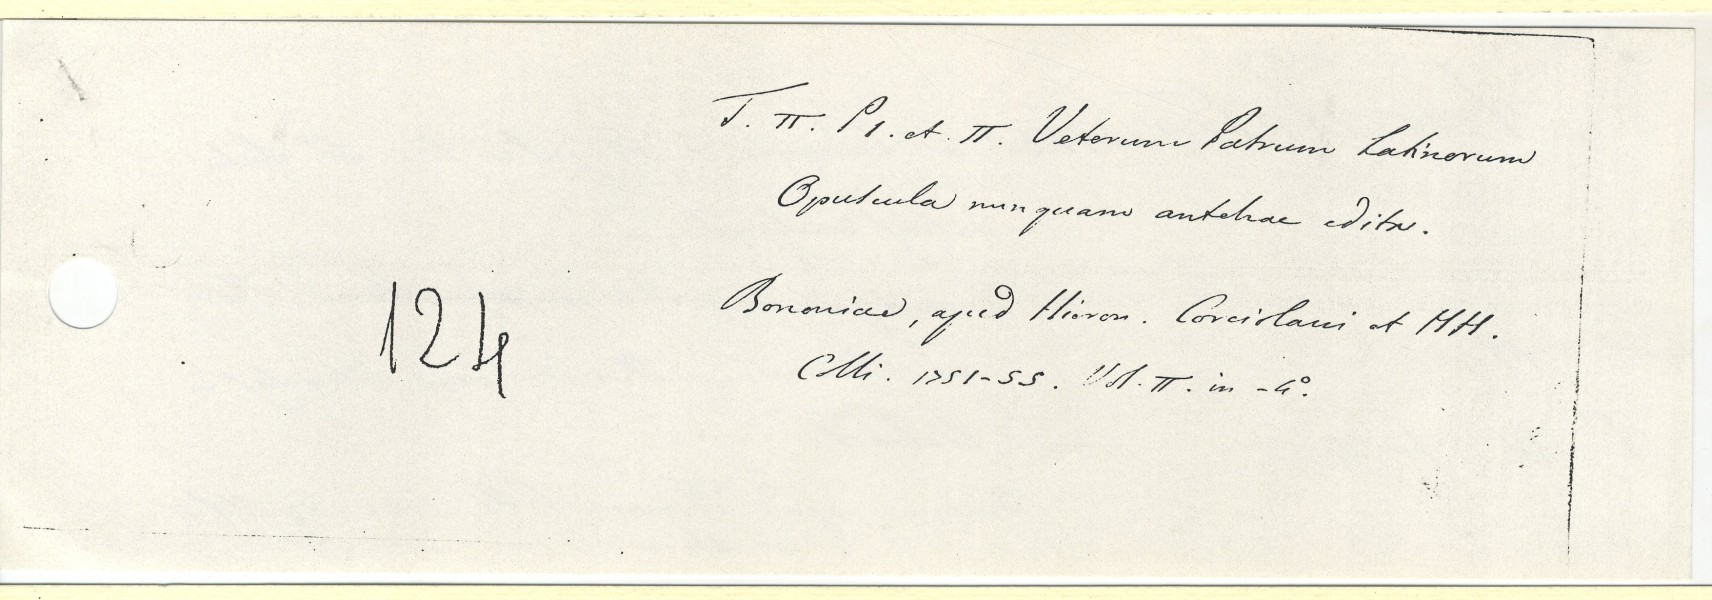 T. II. P I. et II. Veterum Patrum Latinorum
Opuscula nunquam antehac edita.
Bononiae, apud Hieron. Corciolani et HH.
Colli. 1751-55. Vol. II. in -4°.
124